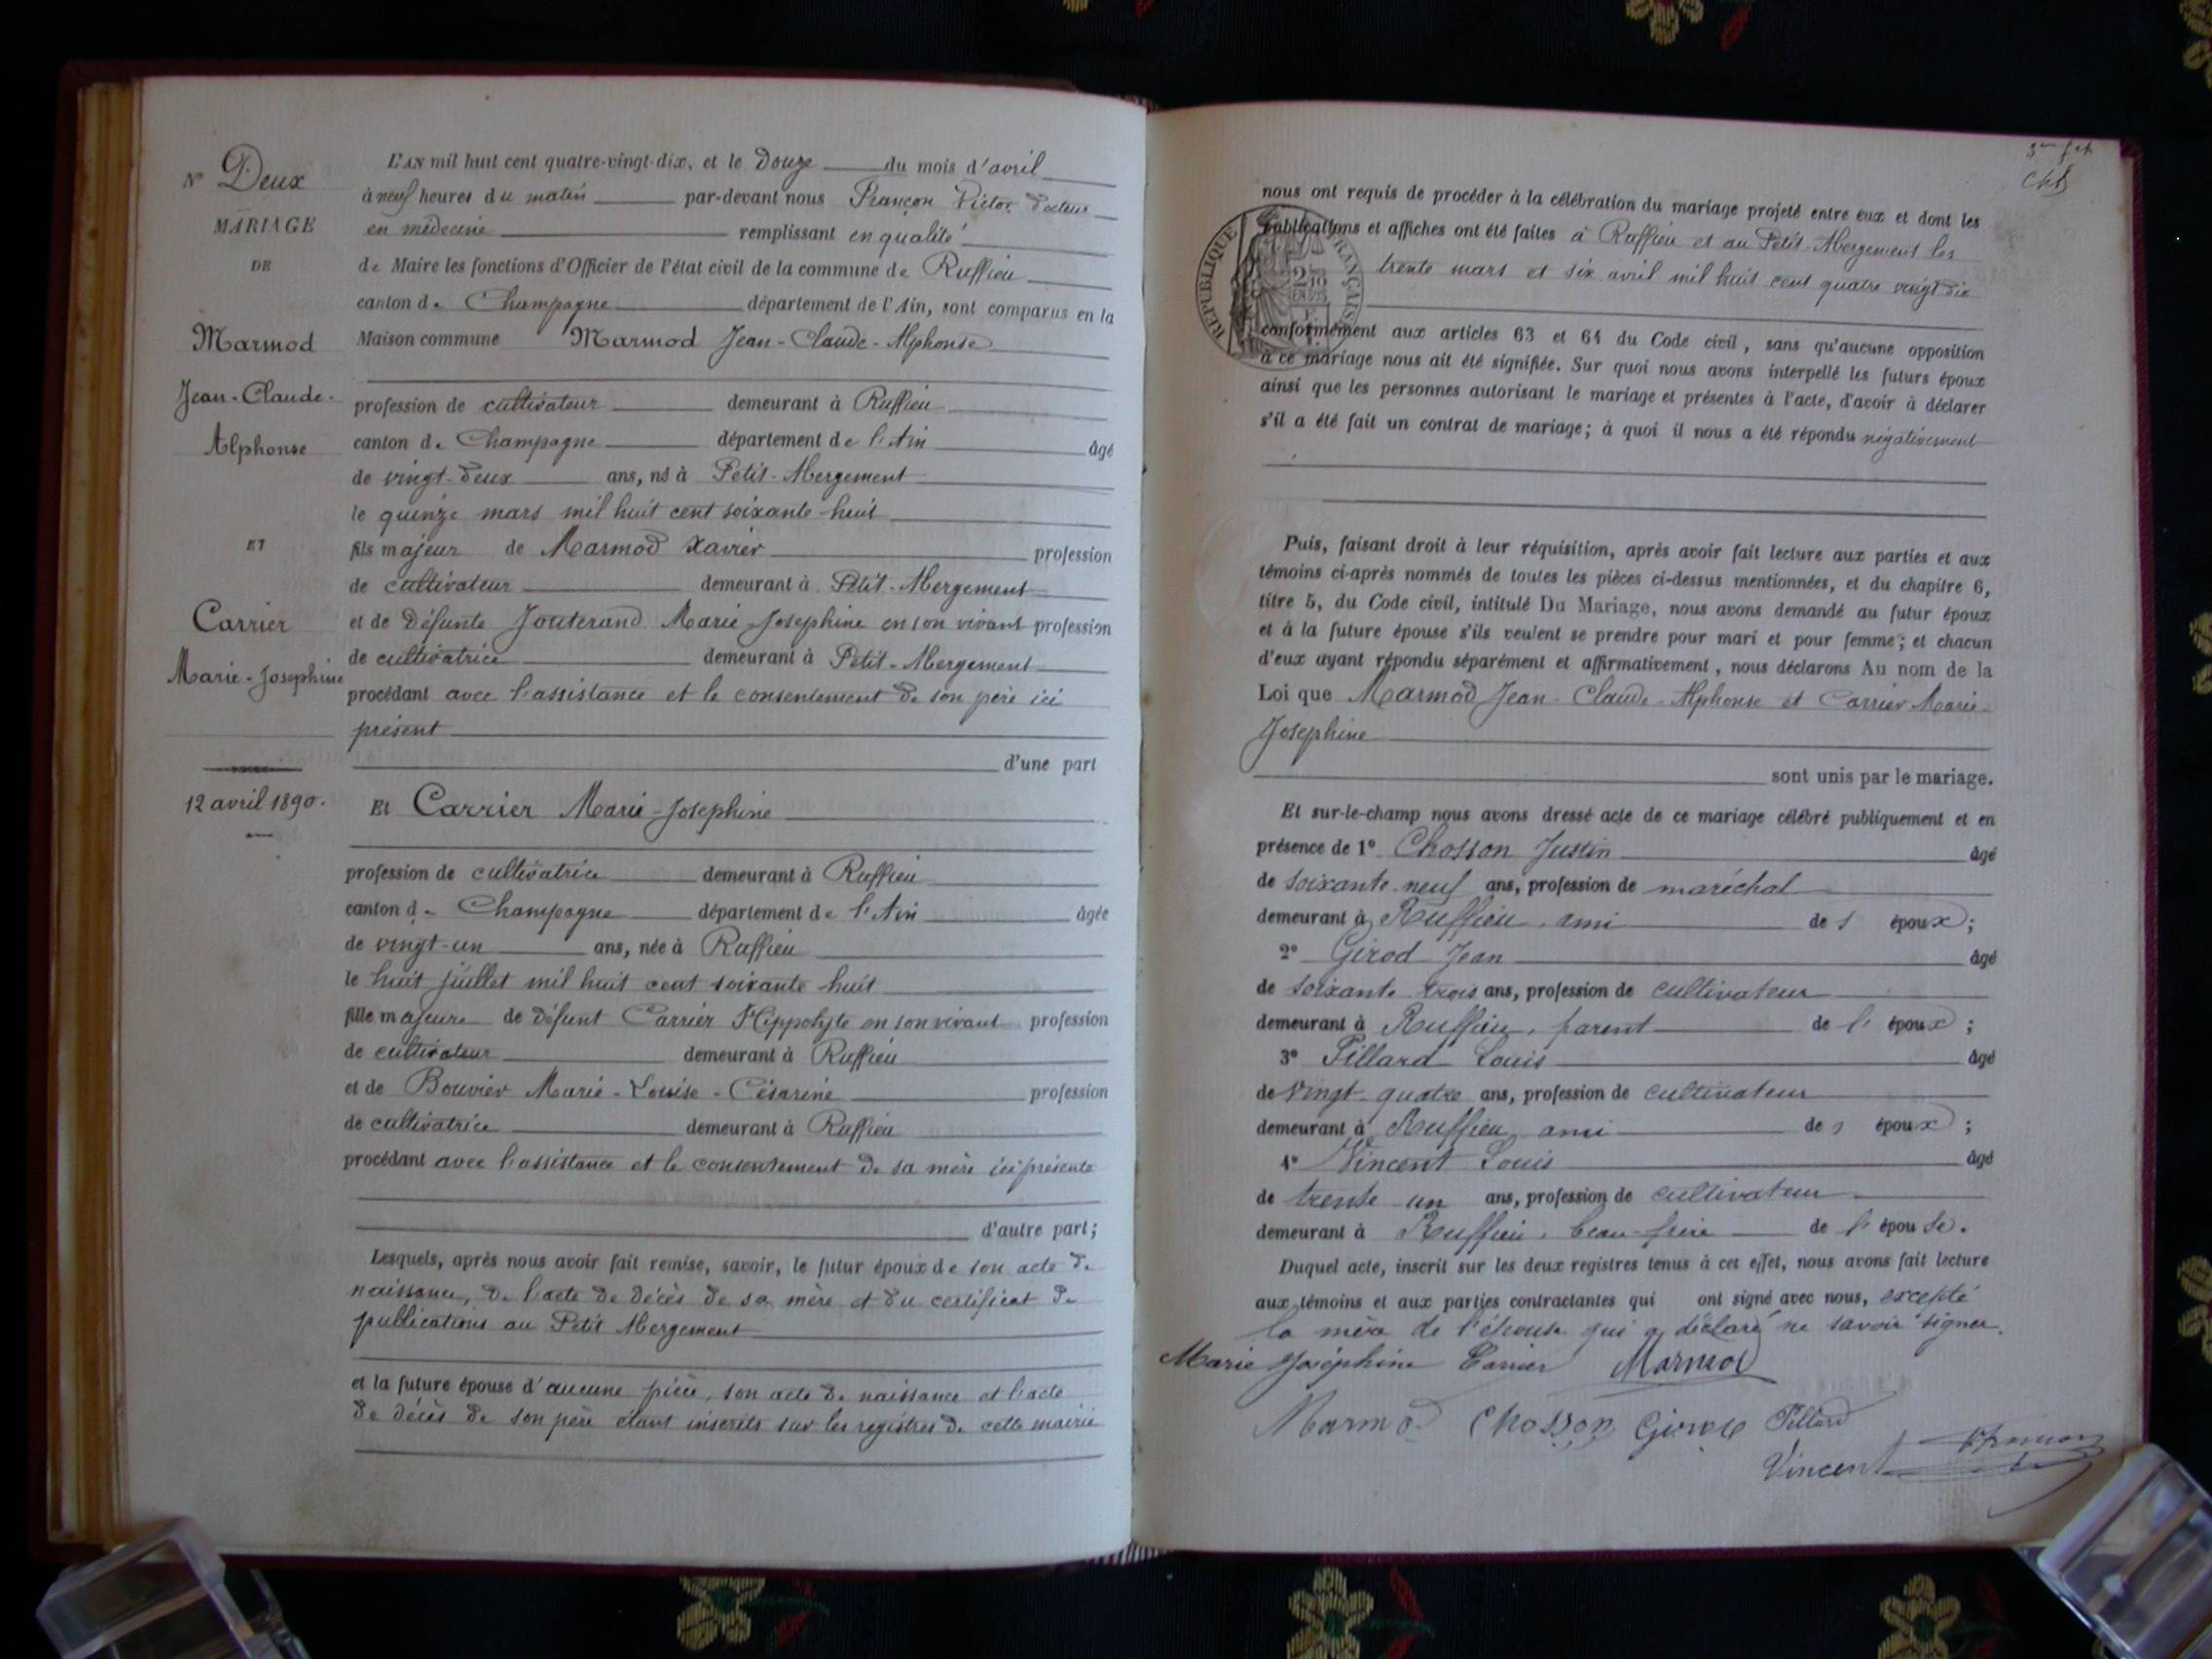 N° Deux
MARIAGE
DE
Marmod
Jean-Claude-
Alphonse
ET
Carrier
Marie-Josephine
12 avril 1890.
L'AN mil huit cent quatre-vingt-dix, et le Douze du mois d'avril
à neuf heures du matin par-devant nous Françon Victor, docteur
en médecine remplissant en qualité
de Maire les fonctions d'Officier de l'état civil de la commune de Ruffieu
canton de Champagne département de l'Ain, sont comparus en la
Maison commune Marmod Jean-Claude-Alphonse
profession de cultivateur demeurant à Ruffieu
canton de Champagne département de l'Ain âgé
de vingt-deux ans, né à Petit-Abergement
le quinze mars mil huit cent soixante-huit
fils majeur de Marmod Xavier profession
de cultivateur demeurant à Petit-Abergement
et de Défunte Jouterand Marie-Josephine en son vivant profession
de cultivatrice demeurant à Petit-Abergement
procédant avec l'assistance et le consentement de son père ici
présent
d'une part
Et Carrier Marie-Josephine
profession de cultivatrice demeurant à Ruffieu
canton de Champagne département de l'Ain âgée
de vingt-un ans, née à Ruffieu
le huit juillet mil huit cent soixante-huit
fille majeure de défunt Carrier Hippolyte en son vivant profession
de cultivateur demeurant à Ruffieu
et de Bouvier Marie-Louise-Césarine profession
de cultivatrice demeurant à Ruffieu
procédant avec l'assistance et le consentement de sa mère ici présente
d'autre part;
Lesquels, après nous avoir fait remise, savoir, le futur époux de son acte de
naissance, de l'acte de décès de sa mère et du certificat de
publications au Petit Abergement
et la future épouse d'aucune pièce, son acte de naissance et l'acte
de décès de son père étant inscrits sur les registres de cette mairie
nous ont requis de procéder à la célébration du mariage projeté entre eux et dont les
publications et affiches ont été faites à Ruffieu et au Petit-Abergement les
trente mars et six avril mil huit cent quatre vingt dix
RÉPUBLIQUE FRANÇAISE
conformément aux articles 63 et 64 du Code civil, sans qu'aucune opposition
à ce mariage nous ait été signifiée. Sur quoi nous avons interpellé les futurs époux
ainsi que les personnes autorisant le mariage et présentes à l'acte, d'avoir à déclarer
s'il a été fait un contrat de mariage; à quoi il nous a été répondu négativement
Puis, faisant droit à leur réquisition, après avoir fait lecture aux parties et aux
témoins ci-après nommés de toutes les pièces ci-dessus mentionnées, et du chapitre 6,
titre 5, du Code civil, intitulé Du Mariage, nous avons demandé au futur époux
et à la future épouse s'ils veulent se prendre pour mari et pour femme; et chacun
d'eux ayant répondu séparément et affirmativement, nous déclarons Au nom de la
Loi que Marmod Jean-Claude-Alphonse et Carrier Marie-
Josephine
sont unis par le mariage.
Et sur-le-champ nous avons dressé acte de ce mariage célébré publiquement et en
présence de 1° Chosson Justin âgé
de soixante-neuf ans, profession de maréchal
demeurant à Ruffieu, ami de s époux;
2° Girod Jean âgé
de soixante trois ans, profession de cultivateur
demeurant à Ruffieu, parent de l' époux;
3° Pillard Louis âgé
de vingt-quatre ans, profession de cultivateur
demeurant à Ruffieu, ami de s époux;
4° Vincent Louis âgé
de trente-un ans, profession de cultivateur
demeurant à Ruffieu, beau-frère de l'épouse.
Duquel acte, inscrit sur les deux registres tenus à cet effet, nous avons fait lecture
aux témoins et aux parties contractantes qui ont signé avec nous, excepté
la mère de l'épouse qui a déclaré ne savoir signer.
Marie Joséphine Carrier Marmod
Marmod Chosson Girod Pillard
Vincent